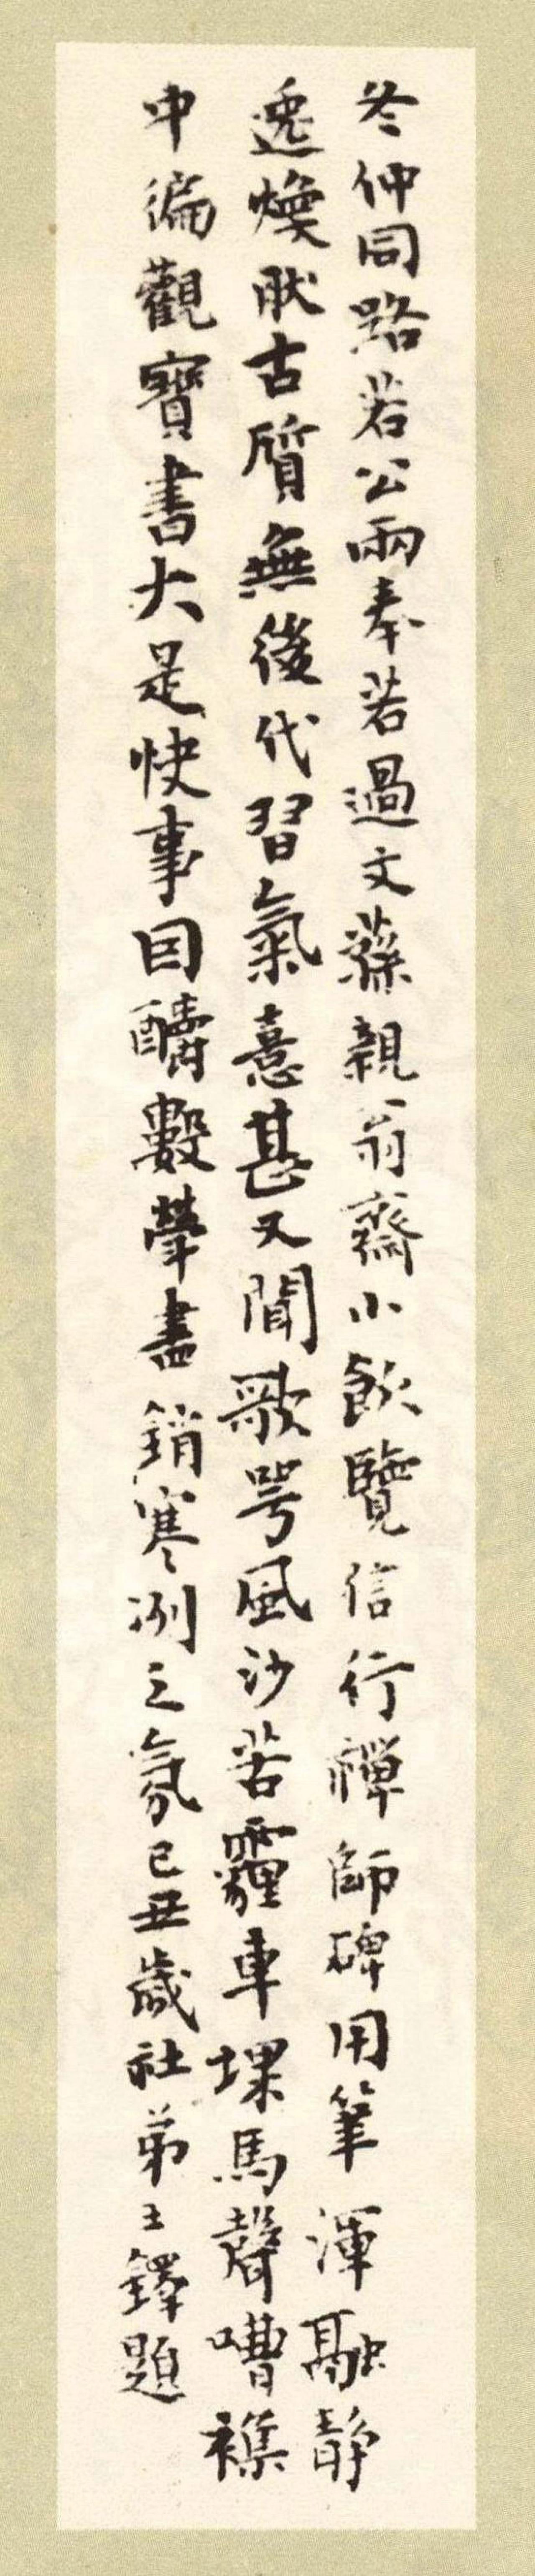 冬仲同路若公兩奉若過文蓀親翁齋小飲覽信行禪師碑用筆渾融靜
逸煥肰古質無後代習氣憙甚又聞歌咢風沙苦霾車堁馬聲嘈襍
中徧觀寶書大是快事因醻數䇦書銷寒冽之氛己丑歲社弟王鐸題